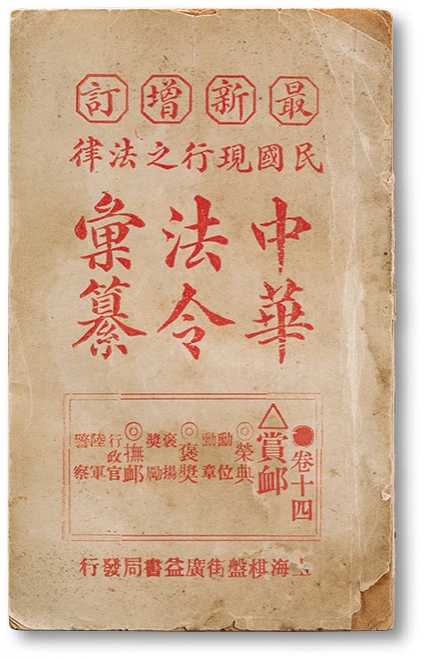 最新增訂
民國現行之法律
中華
法令
彙纂
●卷十四
△賞卹
◎榮典
勛位
勛章
◎褒獎
褒揚
獎勵
◎撫卹
行政官
陸軍
警察
上海棋盤街廣益書局發行